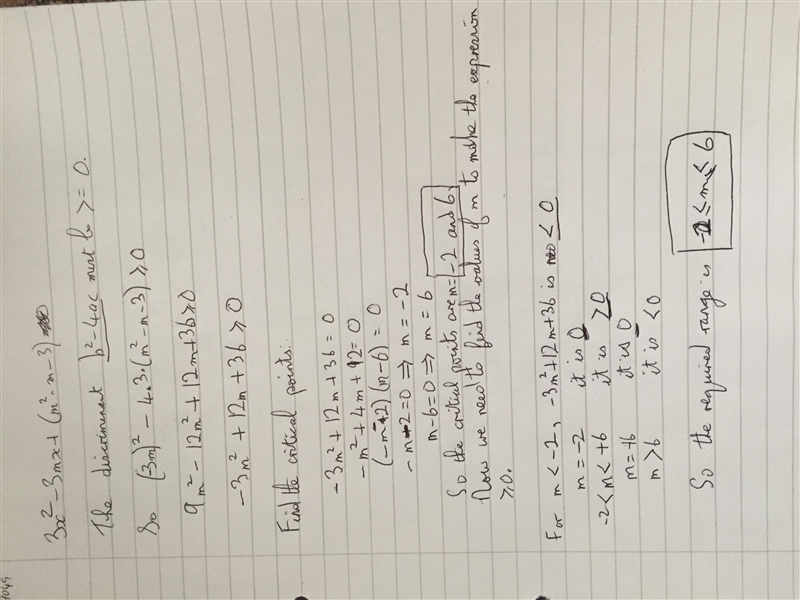 3x² - 3mx + (m² - m - 3)
The discriminant b² - 4ac must be >= 0.
So (3m)² - 4.3.(m² - m - 3) ≥ 0
9m² - 12m² + 12m + 36 ≥ 0
-3m² + 12m + 36 ≥ 0
Find the critical points:
-3m² + 12m + 36 = 0
-m² + 4m + 12 = 0
(-m - 2)(m - 6) = 0
-m - 2 = 0 ⇒ m = -2
m - 6 = 0 ⇒ m = 6
So the critical points are m = -2 and 6.
Now we need to find the values of m to make the expression
≥ 0.
For m < -2, -3m² + 12m + 36 is < 0
m = -2 it is 0
-2 < m < +6 it is > 0
m = +6 it is 0
m > 6 it is < 0
So the required range is -2 ≤ m ≤ 6